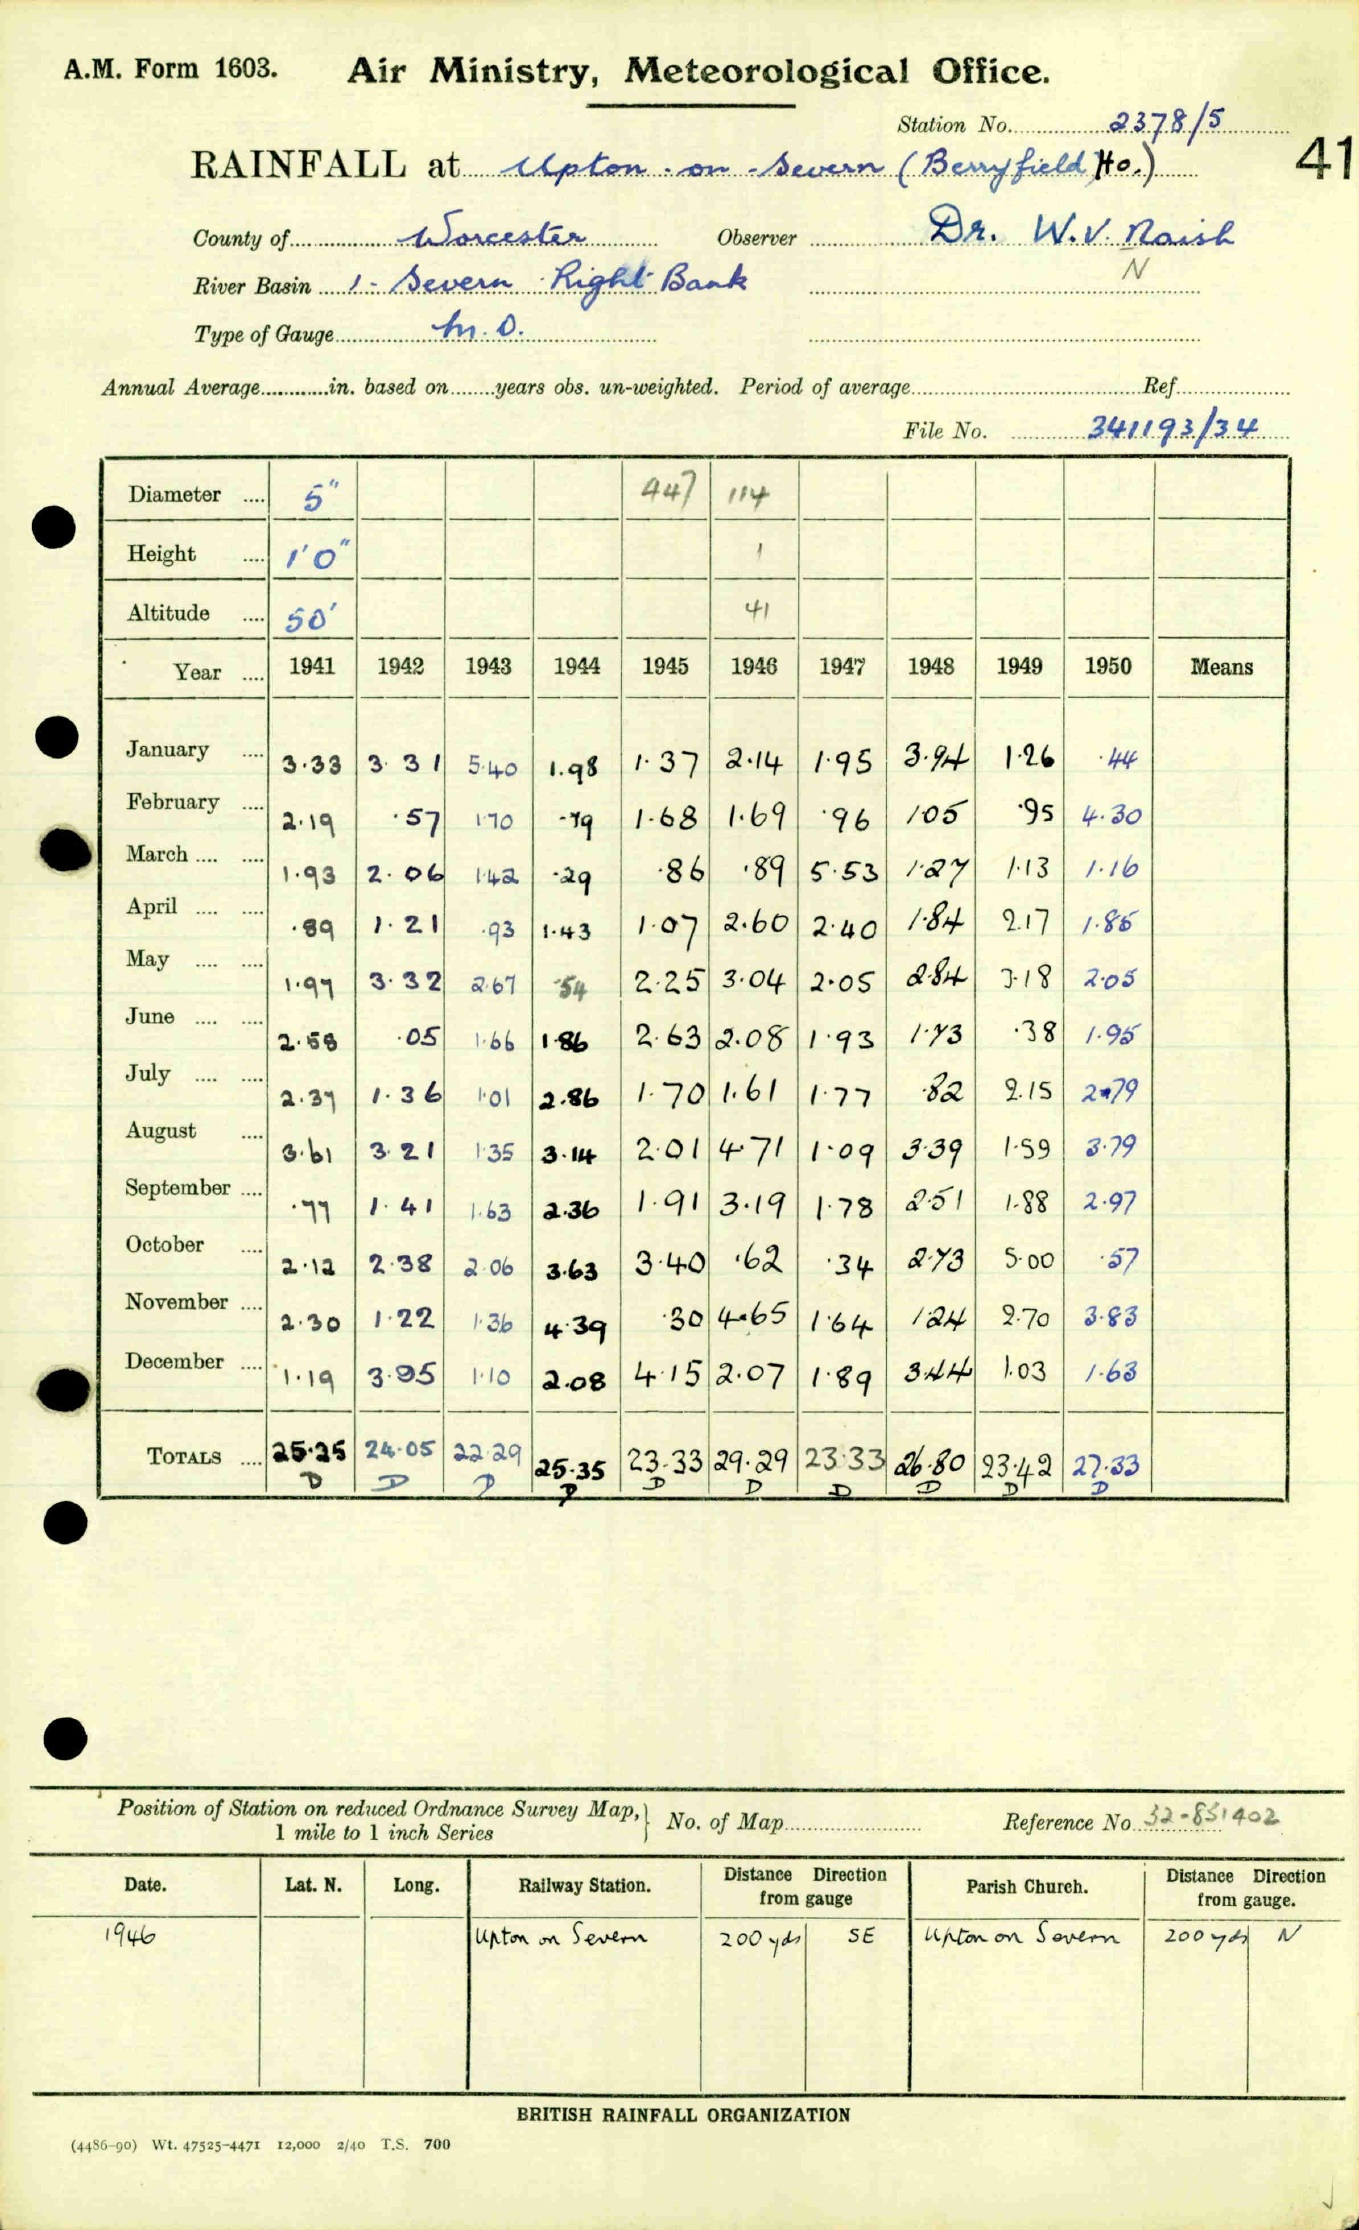 A.M. Form 1603. Air Ministry, Meteorological Office.
Station No. 2378/5
41
RAINFALL at Upton-on-Severn (Berryfield Ho.)
County of Worcester Observer Dr. W.V. Naish
N
River Basin 1- Severn Right Bank
Type of Gauge M.O.
Annual Average in. based on years obs. un-weighted. Period of average Ref
File No. 341193/34
Diameter 5" 447 114
Height 1'0" 1
Altitude 50' 41
Year 1941 1942 1943 1944 1945 1946 1947 1948 1949 1950 Means
January 3.33 3.31 5.40 1.98 1.37 2.14 1.95 3.94 1.26 .44
February 2.19 .57 1.70 .79 1.68 1.69 .96 1.05 .95 4.30
March 1.93 2.06 1.42 .29 .86 .89 5.53 1.27 1.13 1.16
April .89 1.21 .93 1.43 1.07 2.60 2.40 1.84 2.17 1.85
May 1.97 3.32 2.67 .54 2.25 3.04 2.05 2.84 3.18 2.05
June 2.58 .05 1.66 1.86 2.63 2.08 1.93 1.73 .38 1.95
July 2.37 1.36 1.01 2.86 1.70 1.61 1.77 .82 2.15 2.79
August 3.61 3.21 1.35 3.14 2.01 4.71 1.09 3.39 1.59 3.79
September .77 1.41 1.63 2.36 1.91 3.19 1.78 2.51 1.88 2.97
October 2.12 2.38 2.06 3.63 3.40 .62 .34 2.73 5.00 .57
November 2.30 1.22 1.36 4.39 .30 4.65 1.64 1.24 2.70 3.83
December 1.19 3.95 1.10 2.08 4.15 2.07 1.89 3.44 1.03 1.63
TOTALS 25.25 24.05 22.29 25.35 23.33 29.29 23.33 26.80 23.42 27.33
D D D D D D D D D D
Position of Station on reduced Ordnance Survey Map, 1 mile to 1 inch Series No. of Map Reference No. 32-851402
Date. Lat. N. Long. Railway Station. Distance Direction from gauge Parish Church. Distance Direction from gauge.
1946 Upton on Severn 200 yds SE Upton on Severn 200 yds N
BRITISH RAINFALL ORGANIZATION
(4486-90) Wt. 47525-4471 12,000 2/40 T.S. 700